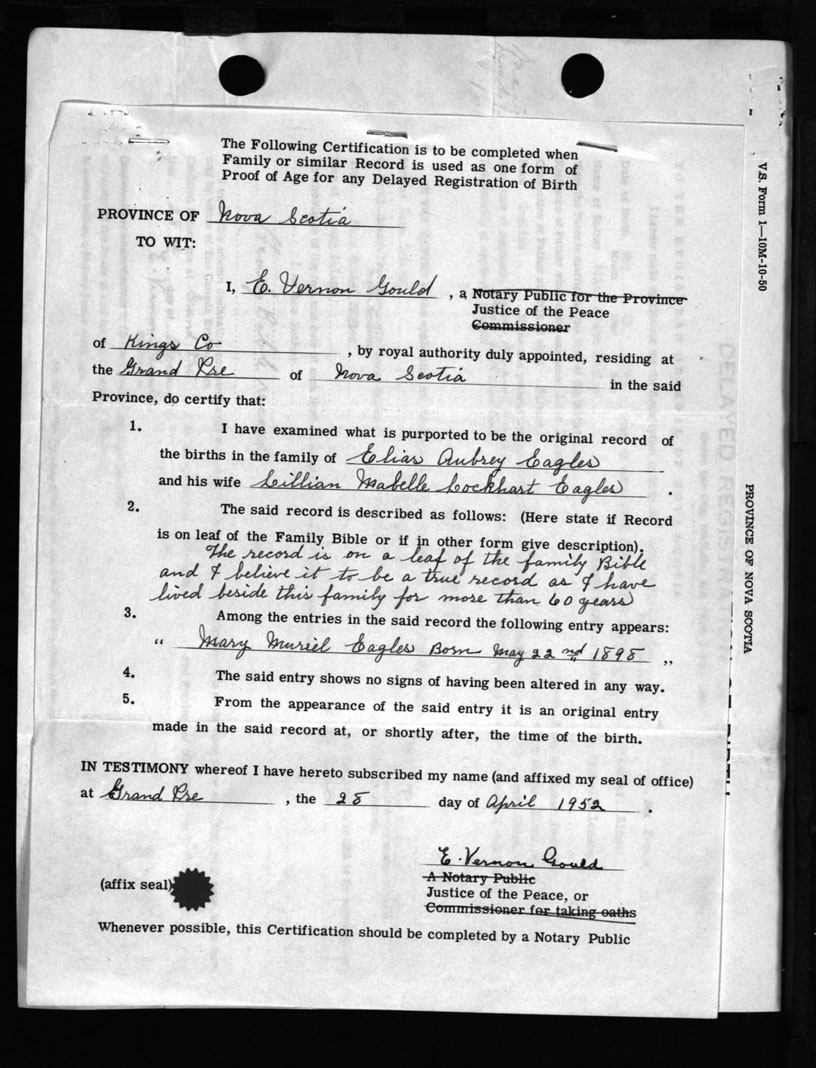 The Following Certification is to be completed when
Family or similar Record is used as one form of
Proof of Age for any Delayed Registration of Birth
PROVINCE OF Nova Scotia
TO WIT:
I, E. Vernon Gould, a Notary Public for the Province
Justice of the Peace
Commissioner
of Kings Co, by royal authority duly appointed, residing at
the Grand Pre of Nova Scotia in the said
Province, do certify that:
1. I have examined what is purported to be the original record of
the births in the family of Elias Aubrey Eagles
and his wife Lillian Mabelle Lockhart Eagles.
2. The said record is described as follows: (Here state if Record
is on leaf of the Family Bible or if in other form give description).
The record is on a leaf of the family Bible
and I believe it to be a true record as I have
lived beside this family for more than 60 years
3. Among the entries in the said record the following entry appears:
" Mary Muriel Eagles Born May 22nd 1898 "
4. The said entry shows no signs of having been altered in any way.
5. From the appearance of the said entry it is an original entry
made in the said record at, or shortly after, the time of the birth.
IN TESTIMONY whereof I have hereto subscribed my name (and affixed my seal of office)
at Grand Pre, the 28 day of April 1952.
E. Vernon Gould
A Notary Public
(affix seal) Justice of the Peace, or
Commissioner for taking oaths
Whenever possible, this Certification should be completed by a Notary Public
V S. Form 1—10M-10-50
PROVINCE OF NOVA SCOTIA